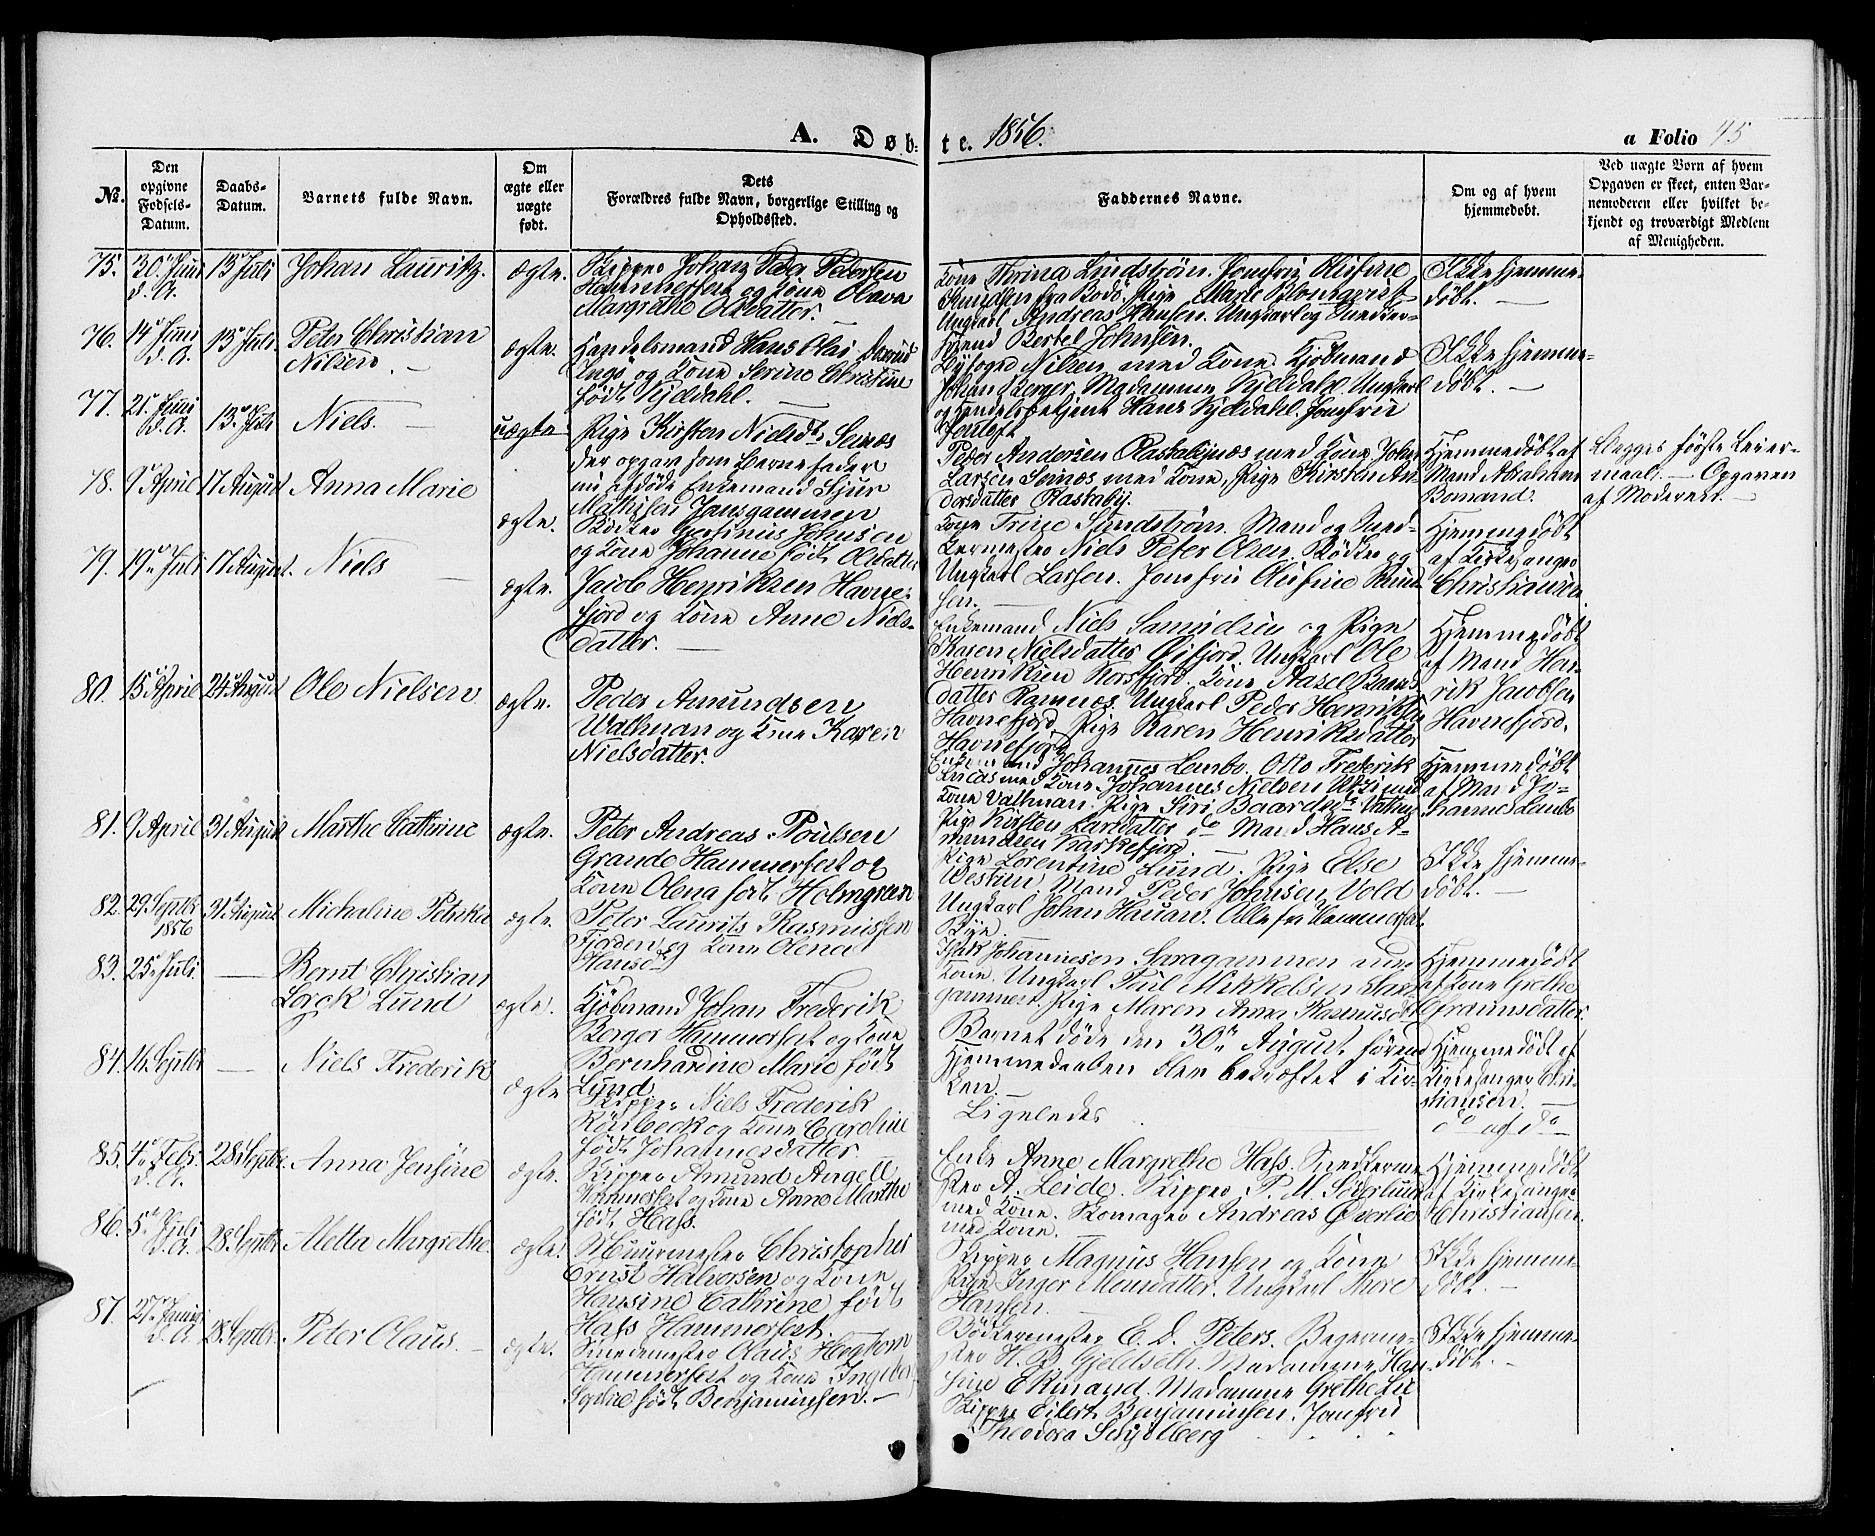 A. Døb-
te. 1856.
a Folio 45
№.
Den opgivne Fødsels-Datum.
Daabs-Datum.
Barnets fulde Navn.
Om ægte eller uægte født.
Dets Forældres fulde Navn, borgerlige Stilling og Opholdssted.
Faddernes Navne.
Om og af hvem hjemmedøbt.
Ved uægte Børn af hvem Opgaven er skeet, enten Barnemoderen eller hvilket bekjendt og troværdigt Medlem af Menigheden.
75. 30. Juni d. A. 13 Juli Johan Lauritz. ægte.
Skipper Johan Peder Pedersen
Hammerfest og Kone Olava
Margrethe Olsdatter.
Kone Thrina Lindstrøm. Jomfru Olufine
Knudsen fra Bodö. Pige Marie Blomqvist
Ungkarl Andreas Hansen. Ungkarl og Snedker-
svend Bertel Johnsen.
Ikke hjemme-
döbt. —
76. 14 Juni d. A. 13 Juli Peter Christian
Nilsen. — ægte.
Handelsmand Hans Olai
og Kone Serine Christine
födt Kjeldahl.
Byfoged Nilsen med Kone. Kjöbmand
Johan Berger. Madamme Kjeldahl. Ungkarl
og Handelsbetjent Hans Kjeldahl. Jomfru
Ikke hjemme-
döbt. —
77. 21 Juni d. A. 13 Juli Niels. — uægte.
Pige Kirsten Nielsdt. Seines
der opgav som Barnefader
nu afdöde Enkemand Sjur
Mathisen Jansgammen
Peder Andersen Raskelvnæs med Kone. John
Larsen Seines med Kone, Pige Kirsten An-
dersdatter Raskaby.
Hjemmedöbt af
Mand Abraham
Bomand.
Begges første Leier-
maal. — Opgaven
af Moderen. —
78. 9 April 17 August Anna Marie ægte.
Bödker Gersinius Johnsen
og Kone Johanne födt Olsdatter
Kone Trine Lundström. Mand og Sned-
kermester Niels Peter Olsen. Bödker og
Ungkarl Larsen. Jomfru Olufine Knud-
sen.
Hjemmedöbt
af Kirkesanger
Christiansen.
79. 19 Juli 17 August. Niels — ægte.
Jacob Henriksen Havne-
fjord og Kone Anne Niels-
datter. —
Enkemand Niels Samuelsen og Pige
Karen Nielsdatter Öxfjord. Ungkarl Ole
Henriksen Korsfjord. Kone
datter Ramnæs. Ungkarl Peder Henriksen
Havnefjord. Pige Karen Henriksdatter
Havnefjord
Hjemmedöbt
af Mand Hen-
rik Jacobsen
Havnefjord.
80. 15 April 24 August Ole Nielsen ægte.
Peder Amundsen
Waltman og Kone Karen
Nielsdatter.
Johannes Lembo. Otto Frederik
med Kone. Johannes Nielsen
Kone Valtman. Pige Siri Baardsdt.
Pige Kirsten Larsdatter do Mand Hans A-
mundsen Karkefjord
Hjemmedöbt
af Mand Jo-
hannes Lembo
81. 9 April 31 August Marthe Cathrine ægte.
Peter Andreas Poulsen
Grande Hammerfest og
Kone Olena födt Holmgreen
Pige Lorentine Lund. Pige Else
Westin. Mand Peder Johnsen Vold
Ungkarl Johan Hauan. Alle fra Hammerfest
Pige.
Ikke hjemme-
döbt. —
82. 29 Septbr 1856 31 August Michaline Petrikke ægte.
Peter Laurits Rasmussen
Fjorden og Kone Olena
Hansdt
Isak Johannesen Saragammen med
Kone. Ungkarl Paul Mikkelsen
gammen. Pige Maren Anna Rasmusdt
Hjemmedöbt
af Kone Grethe
83. 25 Juli. — Bernt Christian
Lorck Lund ægte.
Kjöbmand Johan Frederik
Berger Hammerfest og Kone
Bernhardine Marie födt
Lund.
Barnet döde den 30te August förend
Hjemmedaaben blev bekræftet i Kir-
ken.
Hjemmedöbt af
Kirkesanger Chri-
stiansen. —
84. 16 Septbr — Niels Frederik ægte
Skipper Niels Frederik
Rönbeck og Kone Caroline
födt Johannesdatter.
Ligeledes
do af do
85. 4 Febr. d. A. 28 Septbr. Anna Jensine ægte.
Skipper Amund Angell
Hammerfest og Kone Anne Marthe
födt Hass.
Enke Anne Margrethe Hass. Snedkerme-
ster A. Leide. Skipper P. M. Söderlund
med Kone. Skomager Andreas Överlie
med Kone.
Hjemmedöbt
af Kirkesanger
Christiansen.
86. 5 Juli d. A. 28 Septbr Aletta Margrethe. ægte.
Muurmester Christopher
Ernst Halvorsen og Kone
Hansine Cathrine födt
Hass Hammerfest.
Skipper Magnus Hansen og Kone
Pige Inger Monsdatter. Ungkarl Thore
Hansen.
Ikke hjemme-
döbt. —
87. 27 Juni d. A. 28 Septbr Peter Olaus. — ægte.
Smedemester Olaus Hegstom
Hammerfest og Kone Ingeborg
Sophie födt Benjaminsen. —
Bödkermester E. D. Peters. Bagerme-
ster H. B. Gjeldseth. Madamme Han-
sine Ekmand. Madamme Grethe Lie
Skipper Eilert Benjaminsen. Jomfru
Theodora Schjölberg
Ikke hjemme-
döbt. —